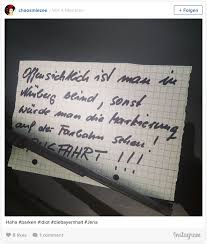 chaosmiezee
vor 4 Monaten
+ Folgen
Offensichtlich ist man in
blind, sonst
würde man die Markierung
auf der Farbahn sehen!
!!!
8 likes
1 comment
Haha #parken #idiot #diebayernhalt #Jena
Instagram